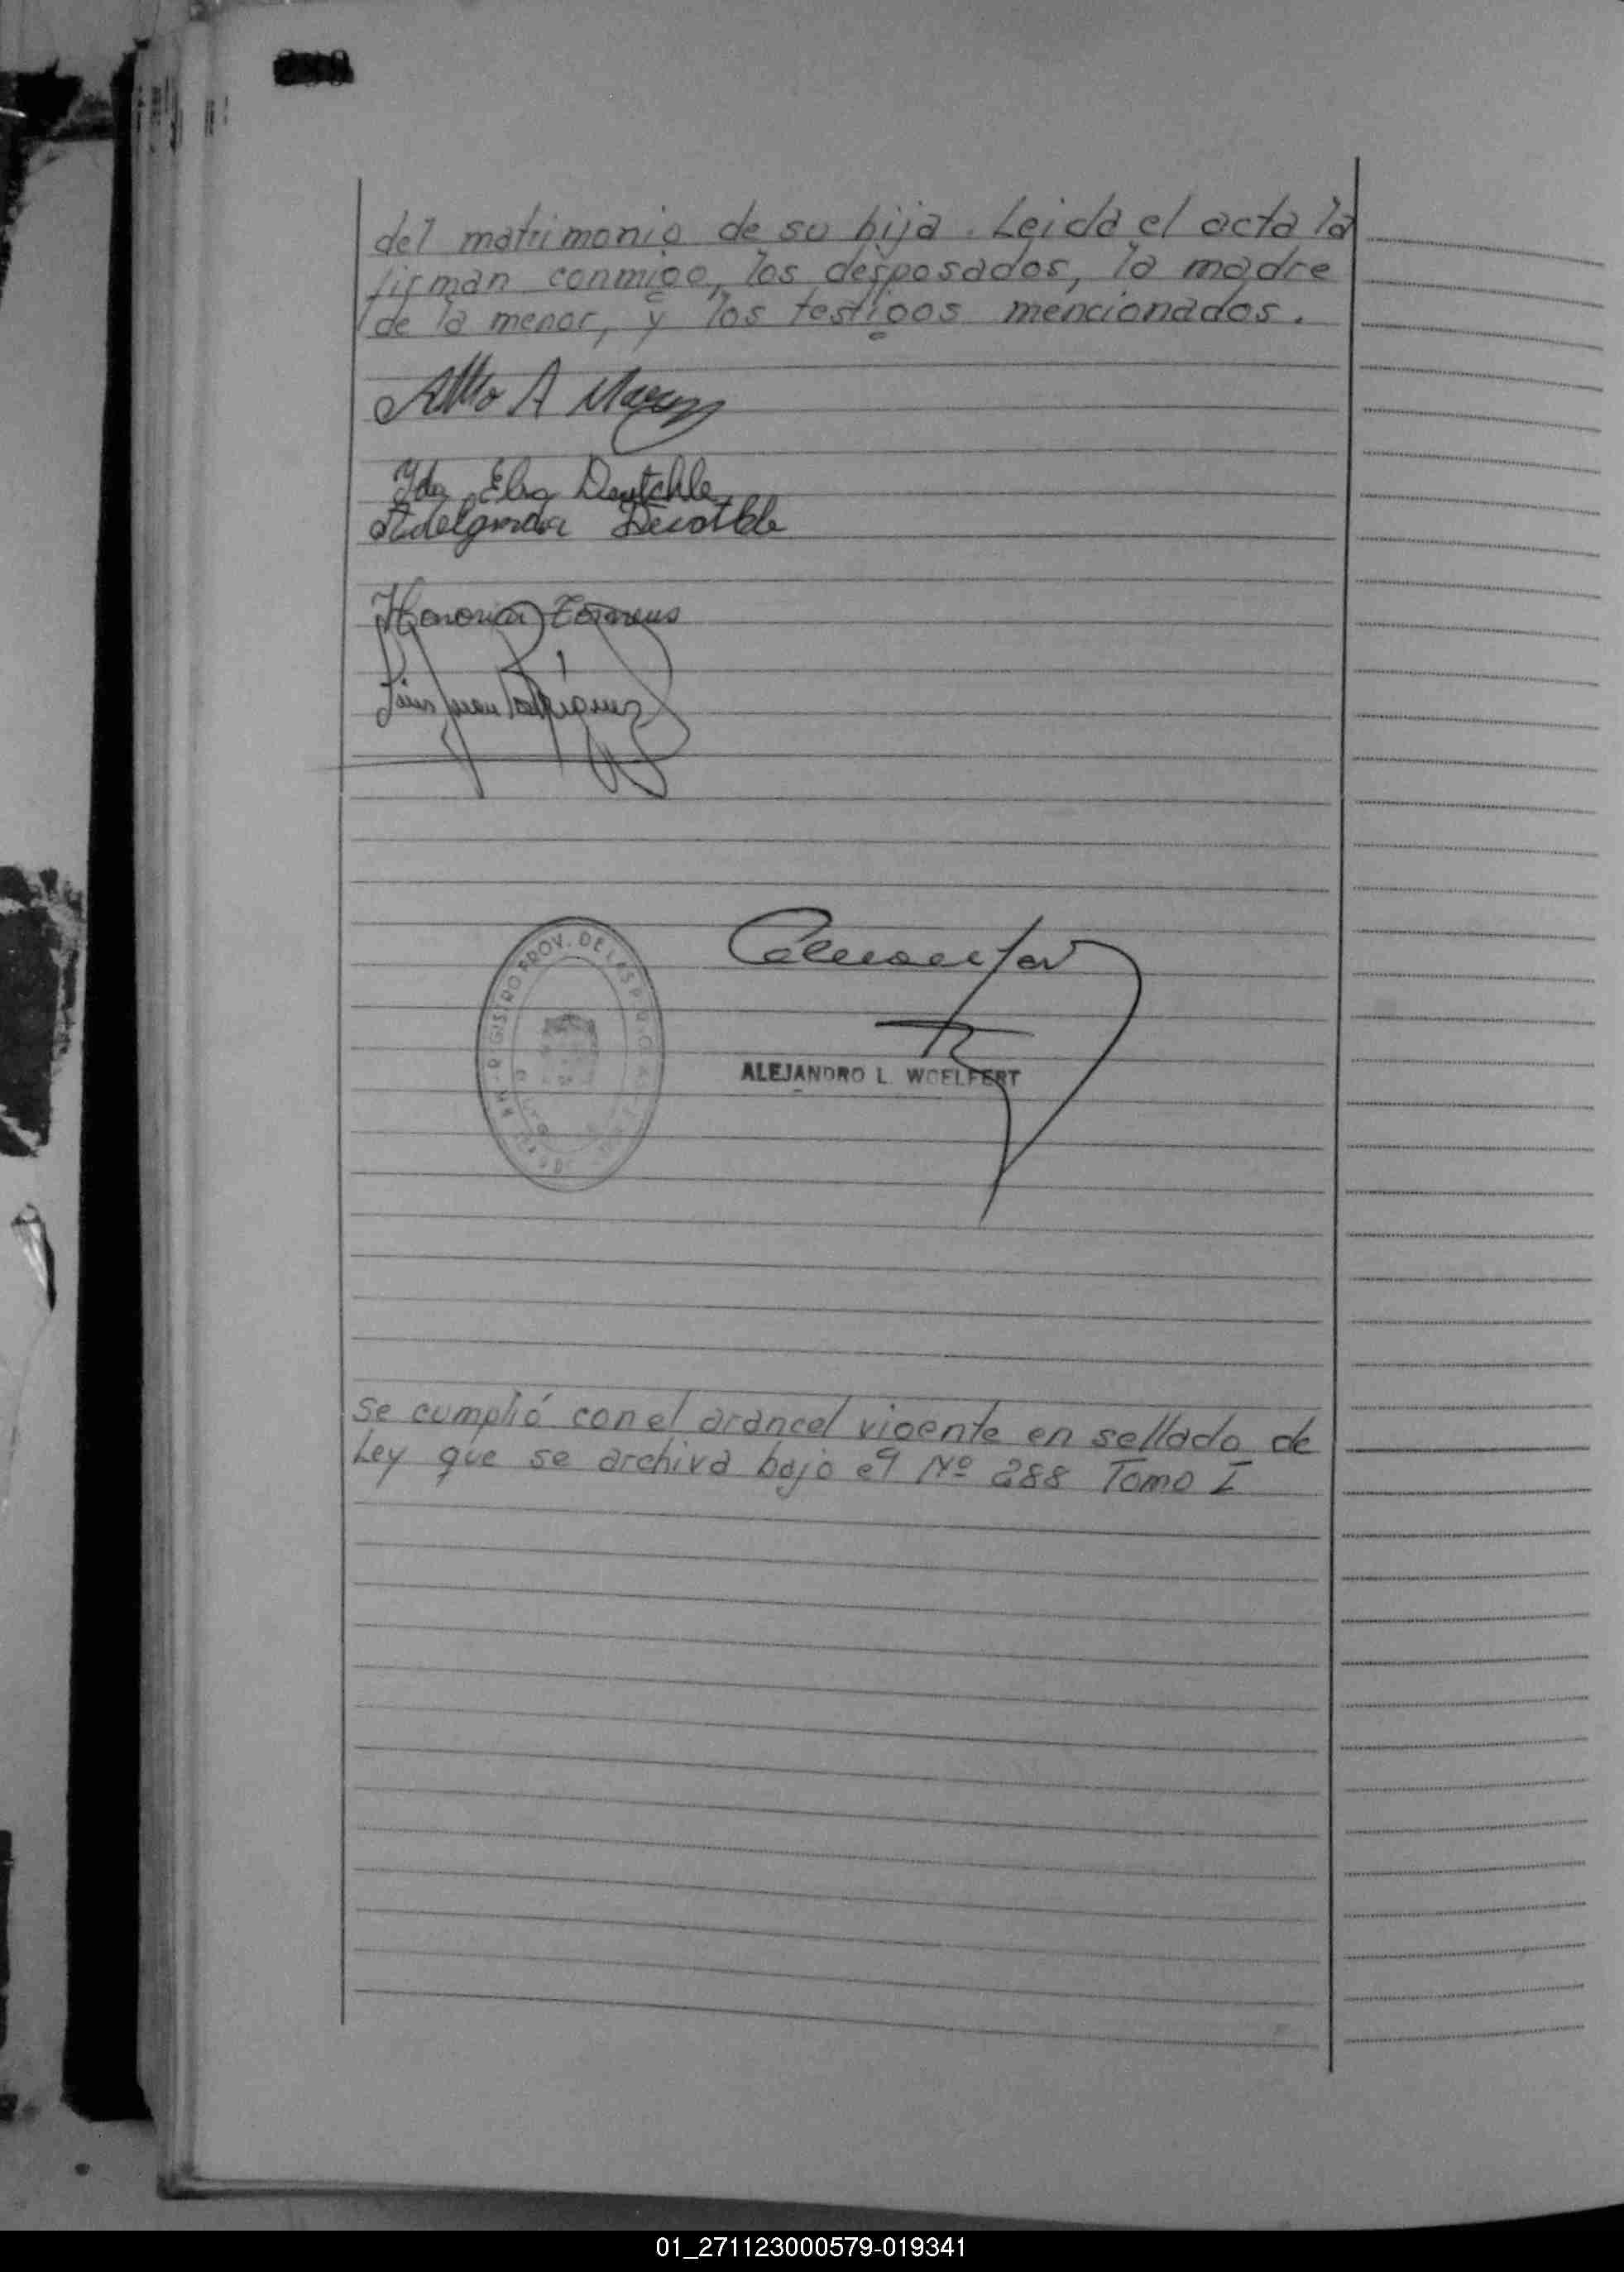 del matrimonio de su hija. Leida el acta la
firman conmigo, los desposados, la madre
de la menor, y los testigos mencionados.
A
Ida Elsa Deutchle
Honoria
Luis Juan Rodriguez
REGISTRO PROV. DE LAS PERSONAS
ALEJANDRO L. WOELFERT
Se cumplió con el arancel vigente en sellado de
Ley que se archiva bajo el Nº 288 Tomo I
01_271123000579-019341